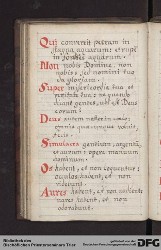 Qui convertit petram in
stagna aquarum: et rupē
in fontes aquarum.
Non nobis Domine, non
nobis, sed nomini tuo
da gloriam.
Super misericordia tua et
veritate tua: ne quando
dicant gentes, ubi est Deus
eorum?
Deus autem noster in
omnia quæcunque voluit,
fecit.
Simulacra gentium, argentū
et aurum: opera manuum
hominum.
Os habent, et non loquentur:
oculos habent, et non
videbunt.
Aures habent, et non
nares habent, et non
odorabunt.
Bibliothek des
Bischöflichen Priesterseminars Trier
gefördert durch die
Deutsche Forschungsgemeinschaft
DFG